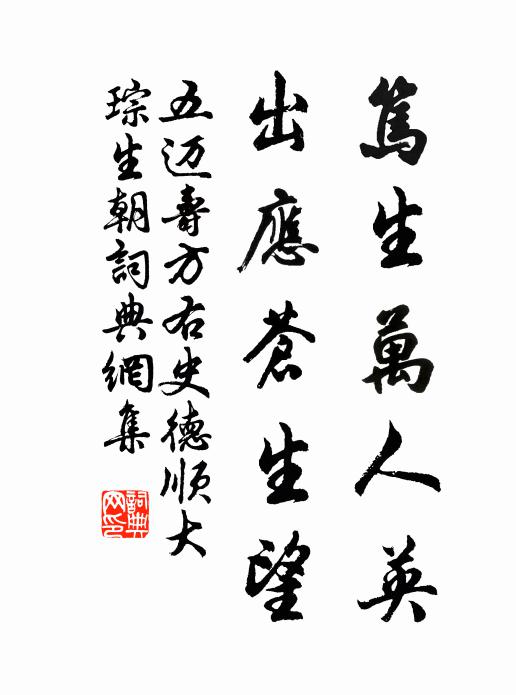 篤生萬人英
出應蒼生望
五迈壽方右史德順大
琮生朝詞典網集
詞典
网印